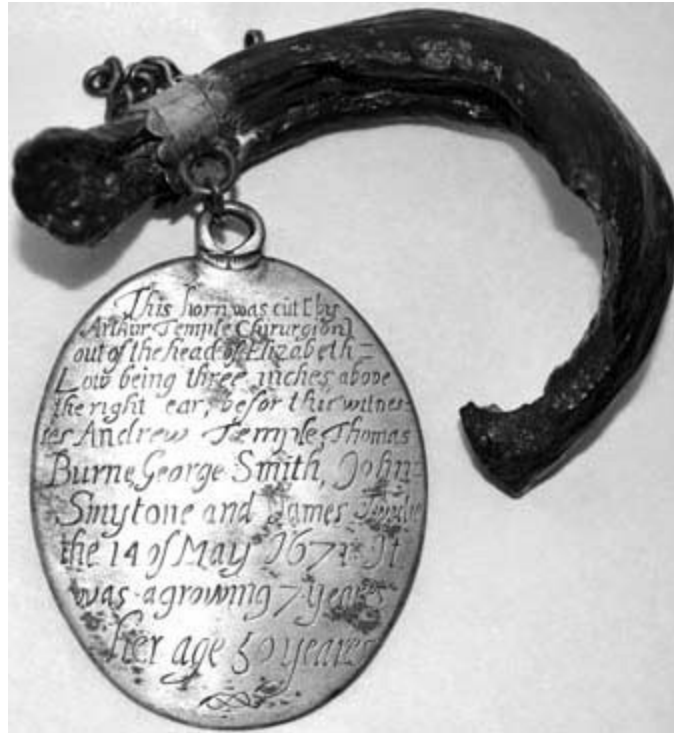 This horn was cutt by
Arthur Temple Chirurgion
out of the head of Elizabeth
Low being three inches above
the right ear, befor thir witnes-
ses Andrew Temple, Thomas
Burne, George Smith, John
Smytone and James
the 14 of May 1671 It
was agrowing 7 yeares
her age 50 yeares